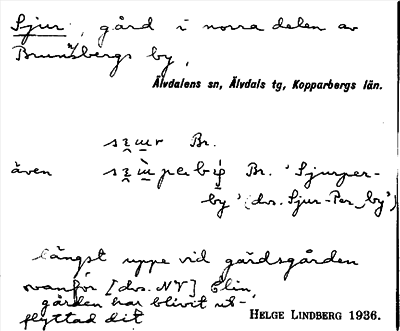 Sjur, gård i norra delen av
Brunnsbergs by,
Älvdalens sn, Älvdals tg, Kopparbergs län.
Br.
även Br. 'Sjurper-
by' (dvs. Sjur-Per_by')
längst uppe vid gärdsgården
ovanför [dvs. NV] Elin,
gården har blivit ut-
flyttad dit
HELGE LINDBERG 1936.